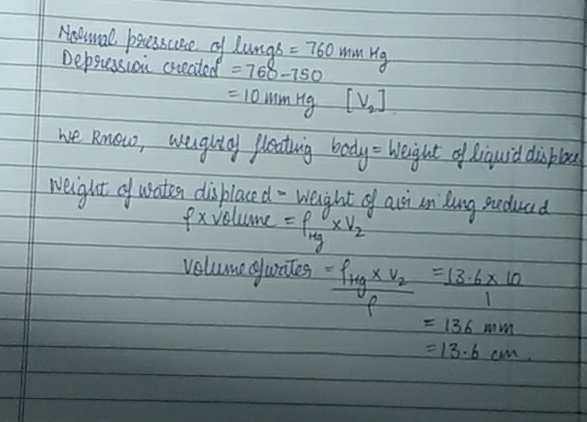 Normal pressure of lungs = 760 mm Hg
Depression created = 760-750
= 10 mm Hg [V₂]
We know, weight of floating body = Weight of liquid displace
Weight of water displaced = Weight of air in lung reduced
ρ x volume = ρHg x V₂
Volume of water = ρHg x V₂ / ρ = 13.6 x 10 / 1
= 136 mm
= 13.6 cm.